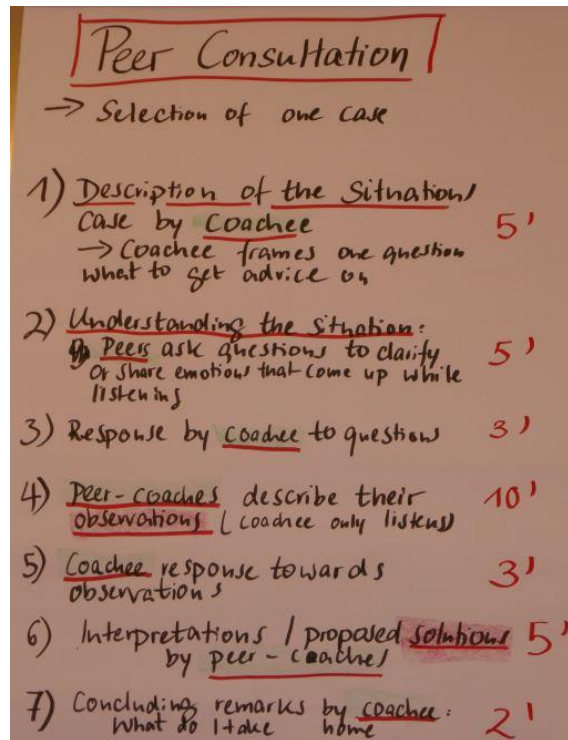 Peer Consultation
→ Selection of one case
1) Description of the Situation/
Case by Coachee 5'
→ Coachee frames one question
what to get advice on
2) Understanding the situation:
Peers ask questions to clarify 5'
Or share emotions that come up while
listening
3) Response by coachee to questions 3'
4) Peer-coaches describe their 10'
observations (coachee only listens)
5) Coachee response towards 3'
observations
6) Interpretations / proposed solutions 5'
by peer-coaches
7) Concluding remarks by coachee: 2'
What do I take home